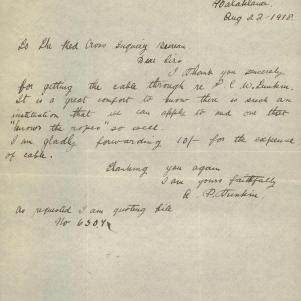 Aug 22-1918.
To The Red Cross Inquiry Bureau
Dear Sirs
I thank you sincerely
for getting the cable through re P. C. W. Dunkin.
It is a great comfort to know there is such an
institution that we can apply to and one that
"knows the ropes" so well.
I am gladly forwarding 10/- for the expense
of cable.
Thanking you again
I am yours faithfully
P. Dunkin
as requested I am quoting file
No 6304